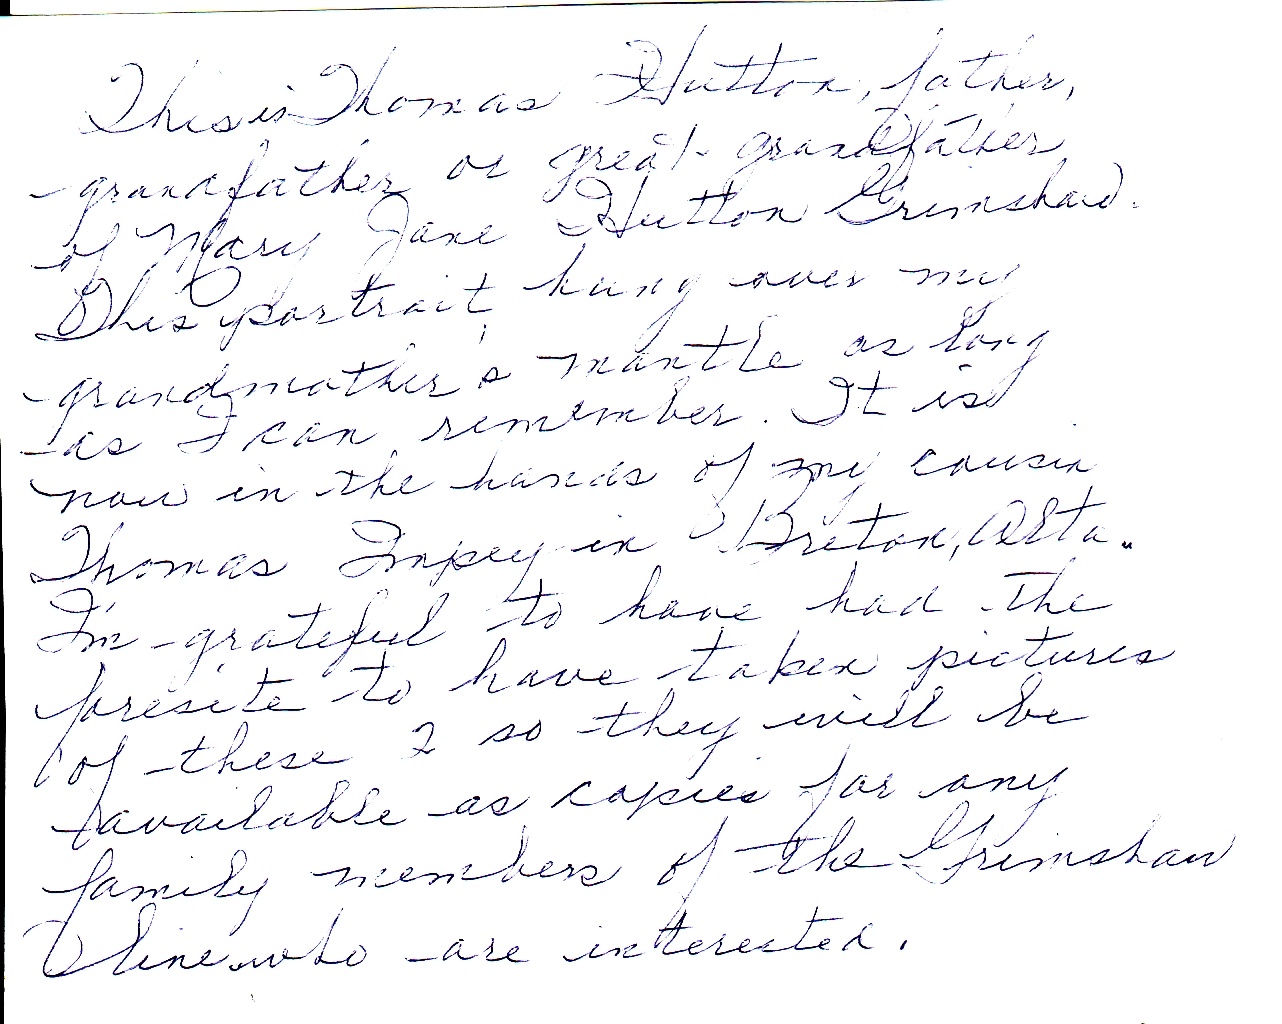 This is Thomas Hutton, father,
grandfather or great-grandfather
of Mary Jane Hutton Grimshaw.
This portrait hung over my
grandmother's mantle as long
as I can remember. It is
now in the hands of my cousin
Thomas Impey in Breton, Alta.
I'm grateful to have had the
foresite to have taken pictures
of these 2 so they will be
available as copies for any
family members of the Grimshaw
line who are interested.